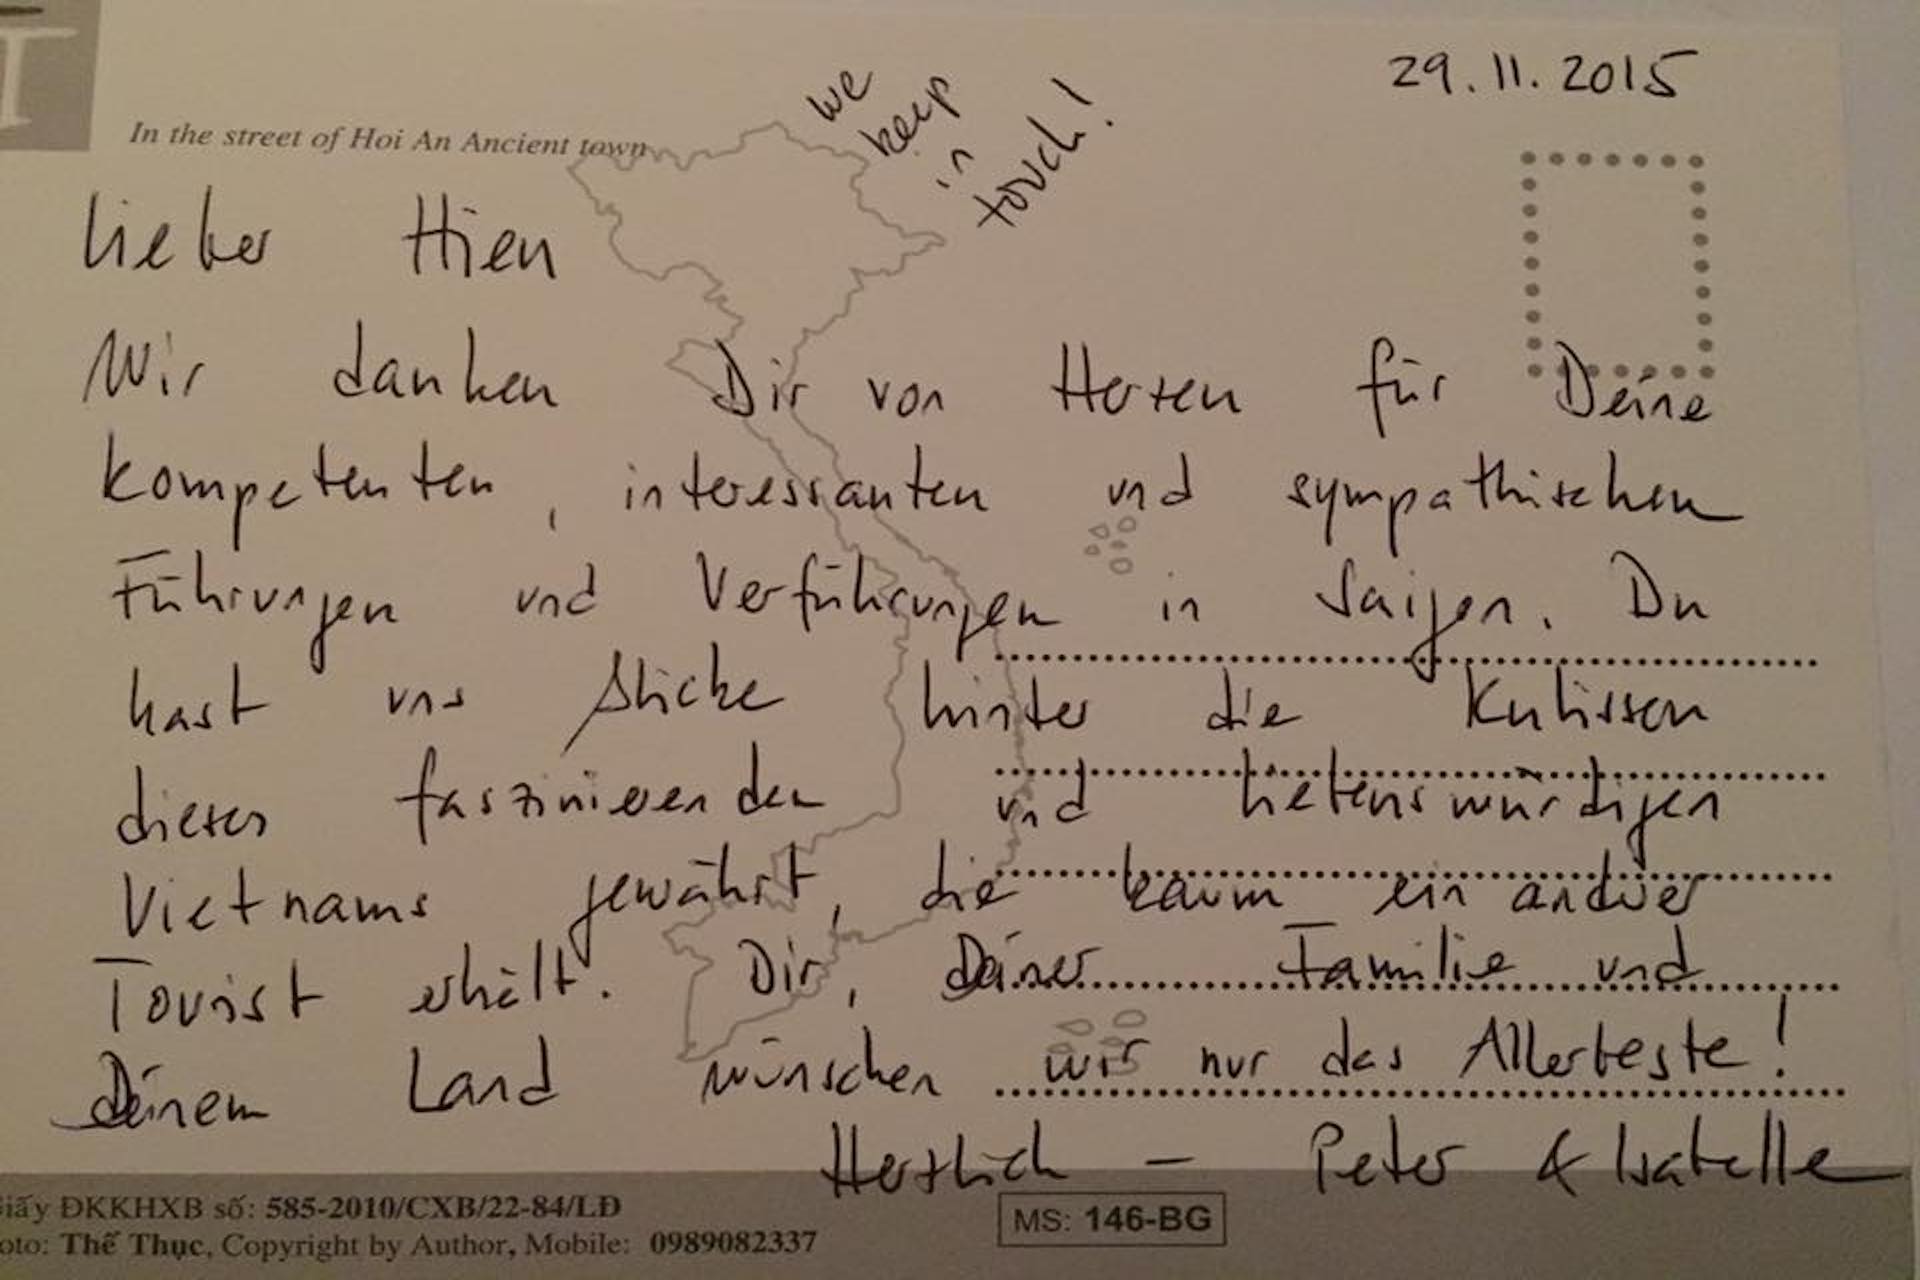 29.11.2015
we
keep
in
touch!
In the street of Hoi An Ancient town
Lieber Hien
Wir danken Dir von Herzen für Deine
kompetenten, interessanten und sympathischen
Führungen und Verführungen in Saigon. Du
hast uns Blicke hinter die Kulissen
dieses faszinierenden und liebenswürdigen
Vietnams gewährt, die kaum ein anderer
Tourist erhält. Dir, Deiner Familie und
Deinem Land wünschen wir nur das Allerbeste!
Herzlich - Peter & Isabelle
iấy ĐKKHXB số: 585-2010/CXB/22-84/LĐ
MS: 146-BG
oto: Thế Thục, Copyright by Author, Mobile: 0989082337